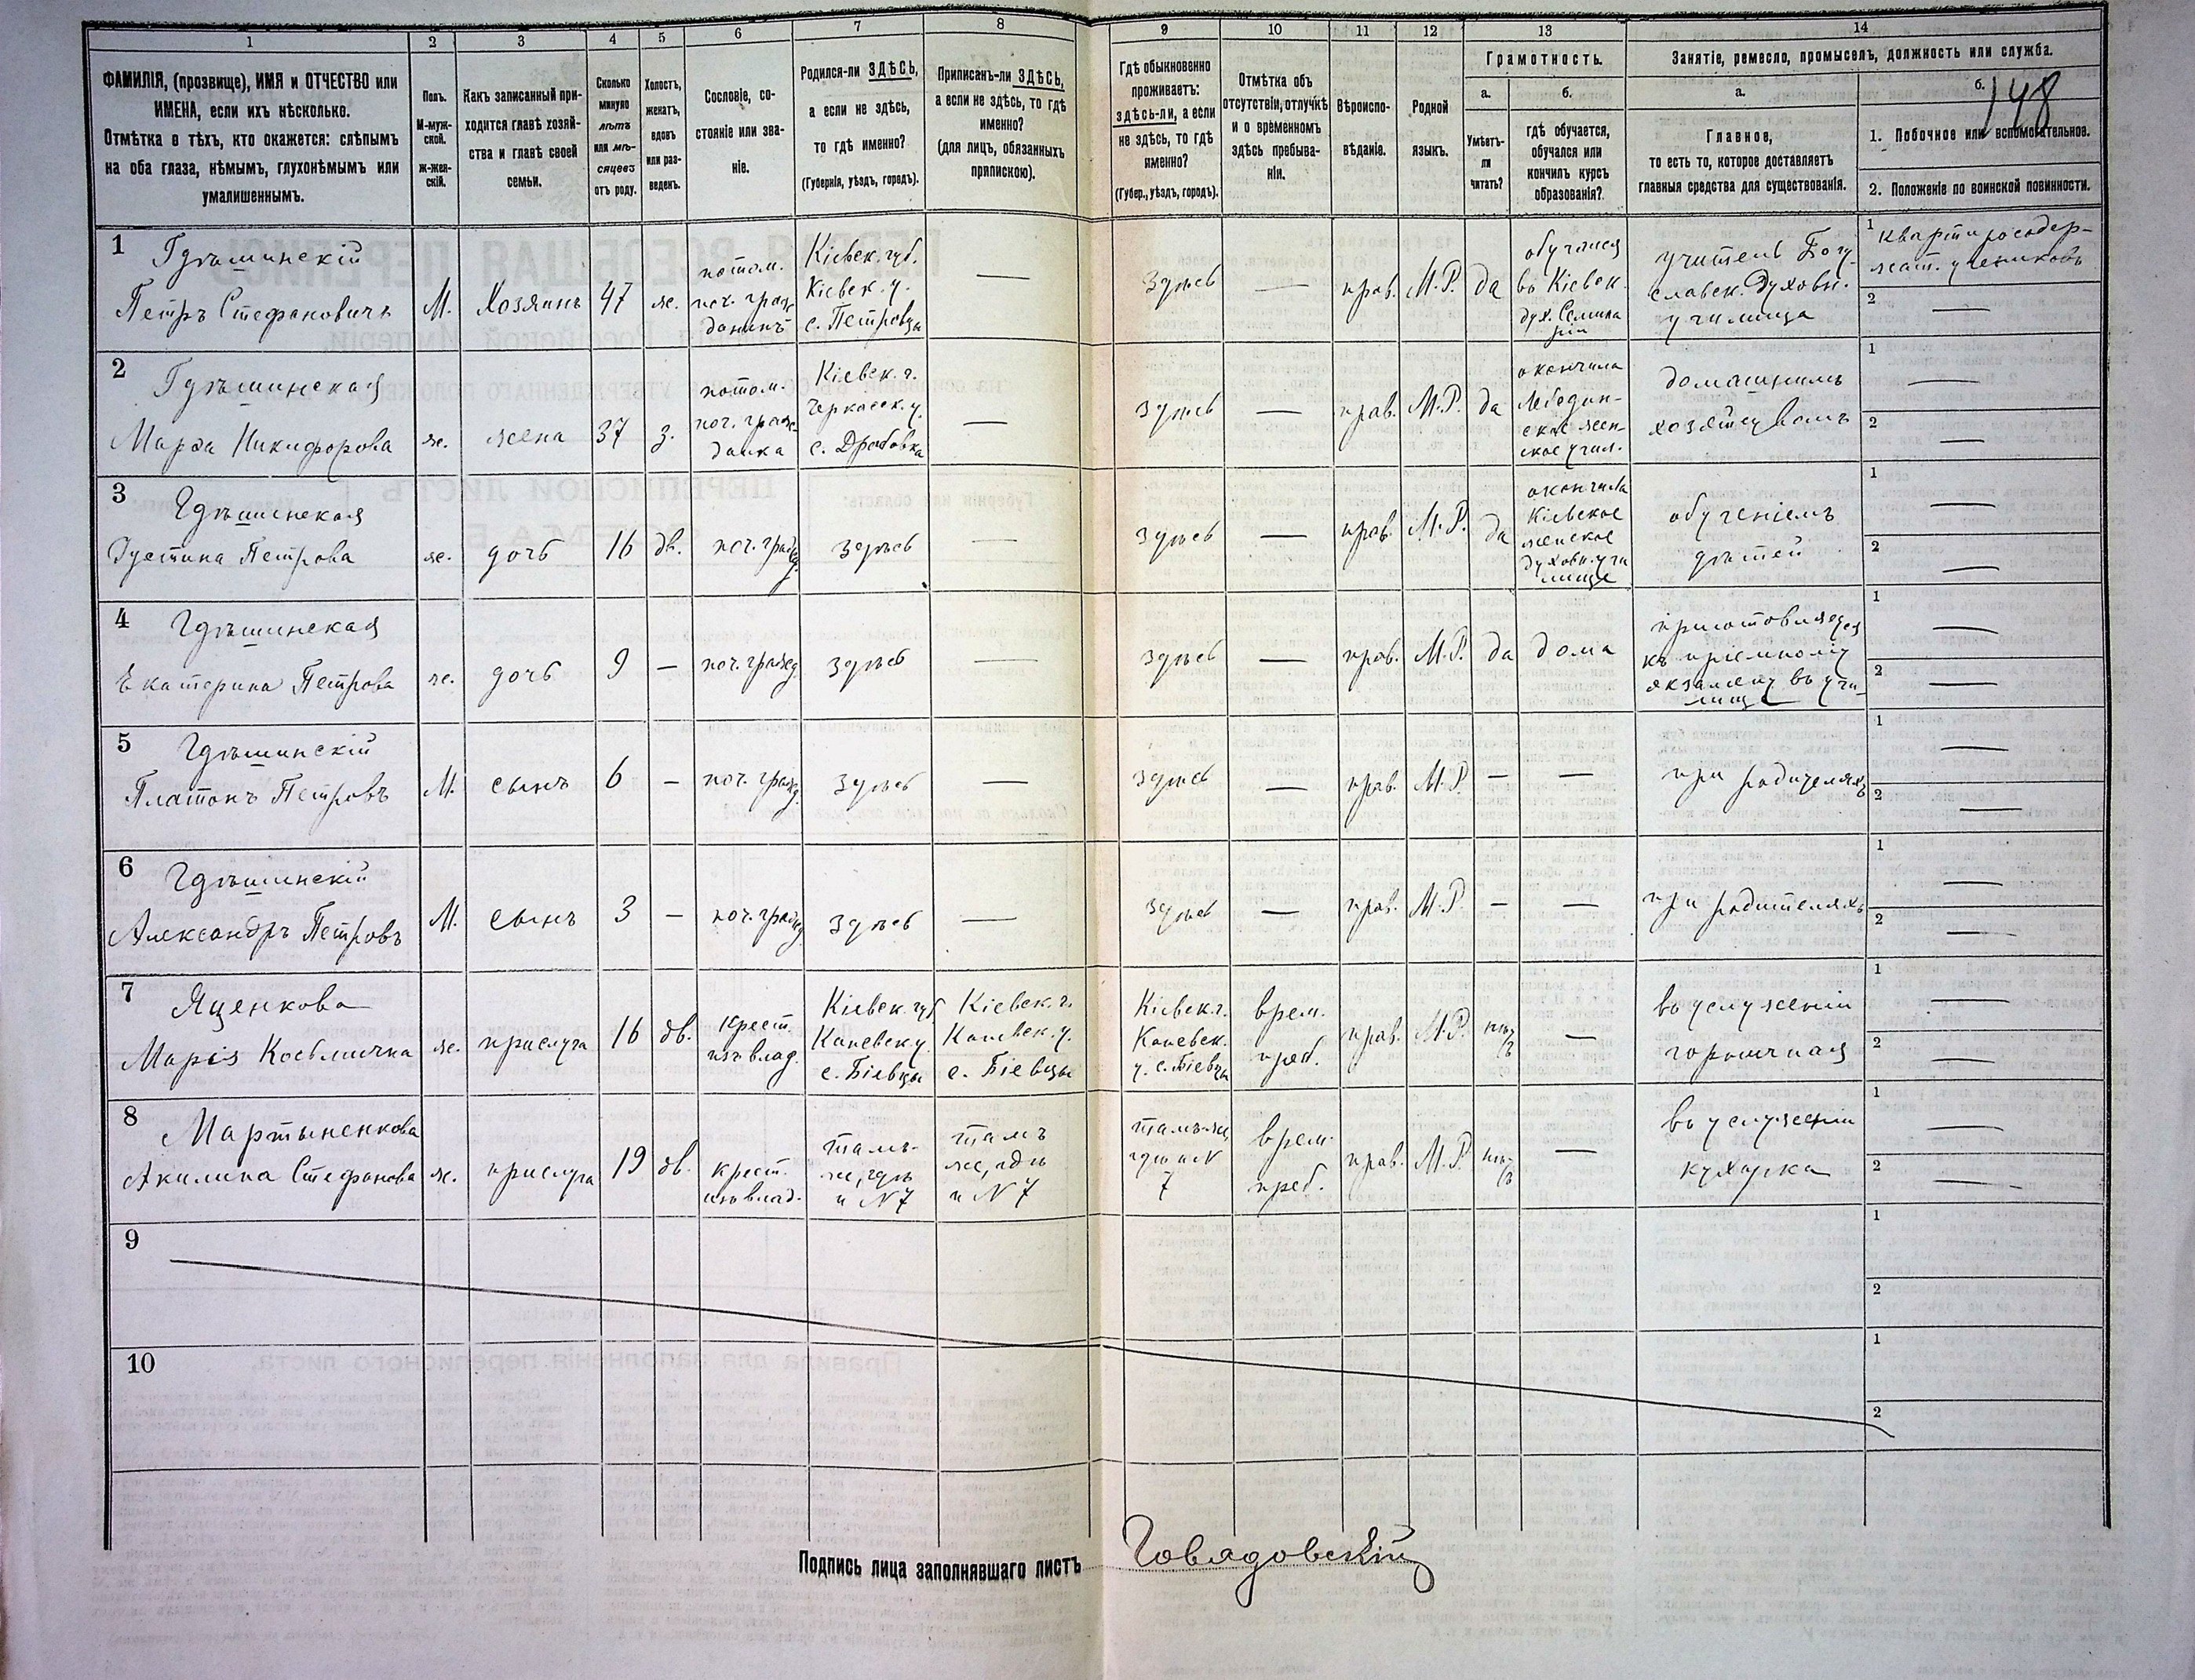 1 2 3 4 5 6 7 8 9 10 11 12 13 14
ФАМИЛІЯ, (прозвище), ИМЯ и ОТЧЕСТВО или
ИМЕНА, если ихъ нѣсколько.
Отмѣтка о тѣхъ, кто окажется: слѣпымъ
на оба глаза, нѣмымъ, глухонѣмымъ или
умалишеннымъ.
Полъ.
М-муж-
ской.
ж-жен-
скій.
Какъ записанный при-
ходится главѣ хозяй-
ства и главѣ своей
семьи.
Сколько
минуло
лѣтъ
или мѣ-
сяцевъ
отъ роду.
Холостъ,
женатъ,
вдовъ
или раз-
веденъ.
Сословіе, со-
стояніе или зва-
ніе.
Родился-ли ЗДѢСЬ,
а если не здѣсь,
то гдѣ именно?
(Губернія, уѣздъ, городъ).
Приписанъ-ли ЗДѢСЬ,
а если не здѣсь, то гдѣ
именно?
(для лицъ, обязанныхъ
припискою).
Гдѣ обыкновенно
проживаетъ:
здѣсь-ли, а если
не здѣсь, то гдѣ
именно?
(Губер., уѣздъ, городъ).
Отмѣтка объ
отсутствіи, отлучкѣ
и о временномъ
здѣсь пребыва-
ніи.
Вѣроиспо-
вѣданіе.
Родной
языкъ.
Грамотность.
а.
Умѣетъ-
ли
читать?
б.
гдѣ обучается,
обучался или
кончилъ курсъ
образованія?
Занятіе, ремесло, промыселъ, должность или служба.
а.
Главное,
то есть то, которое доставляетъ
главныя средства для существованія.
б.
148
1. Побочное или вспомогательное.
2. Положеніе по воинской повинности.
1
Гдѣшинскій
Петръ Стефановичъ
М.
Хозяинъ
47
ж.
потом.
поч. граж
данинъ
Кіевск. губ.
Кіевск. у.
с. Петровцы
—
Здѣсь
—
прав.
М.Р.
да
обучался
въ Кіевск.
дух. Семина
ріи
учитель Богу
славск. Духовн.
училища
1 Квартиросодер-
жат. учениковъ
2 —
2
Гдѣшинская
Марѳа Никифорова
ж.
жена
37
з.
потом.
поч. граж-
данка
Кіевск. г.
Черкасск. у.
с. Драбовка
—
Здѣсь
—
прав.
М.Р.
да
окончила
Лебедин-
ское жен-
ское учил.
домашнимъ
хозяйствомъ
1 —
2 —
3
Гдѣшинская
Іустина Петрова
ж.
дочь
16
дв.
поч. гражд.
Здѣсь
—
Здѣсь
—
прав.
М.Р.
да
окончила
Кіевское
женское
духовн. учи
лище
обученіемъ
дѣтей
1 —
2 —
4
Гдѣшинская
Екатерина Петрова
ж.
дочь
9
—
поч. гражд.
Здѣсь
—
Здѣсь
—
прав.
М.Р.
да
дома
приготовляется
къ пріемному
экзамену въ учи-
лище
1 —
2 —
5
Гдѣшинскій
Платонъ Петровъ
М.
сынъ
6
—
поч. гражд.
Здѣсь
—
Здѣсь
—
прав.
М.Р.
—
—
при родителяхъ
1 —
2 —
6
Гдѣшинскій
Александръ Петровъ
М.
сынъ
3
—
поч. гражд.
Здѣсь
—
Здѣсь
—
прав.
М.Р.
—
—
при родителяхъ
1 —
2 —
7
Яценкова
Марія Косьмична
ж.
прислуга
16
дв.
крест.
изъ влад.
Кіевск. губ.
Каневск. у.
с. Біевцы
Кіевск. г.
Каневск. у.
с. Біевцы
Кіевск. г.
Каневск.
у. с. Біевцы
врем.
преб.
прав.
М.Р.
нѣтъ
—
въ услуженіи
горничная
1 —
2 —
8
Мартыненкова
Акилина Стефанова
ж.
прислуга
19
дв.
крест.
изъ влад.
тамъ-
же, гдѣ
и N 7
тамъ
же, гдѣ
и N 7
тамъ-же,
гдѣ и N
7
врем.
преб.
прав.
М.Р.
нѣтъ
—
въ услуженіи
кухарка
1 —
2 —
9
1
2
10
1
2
Подпись лица заполнявшаго листъ Говядовскій